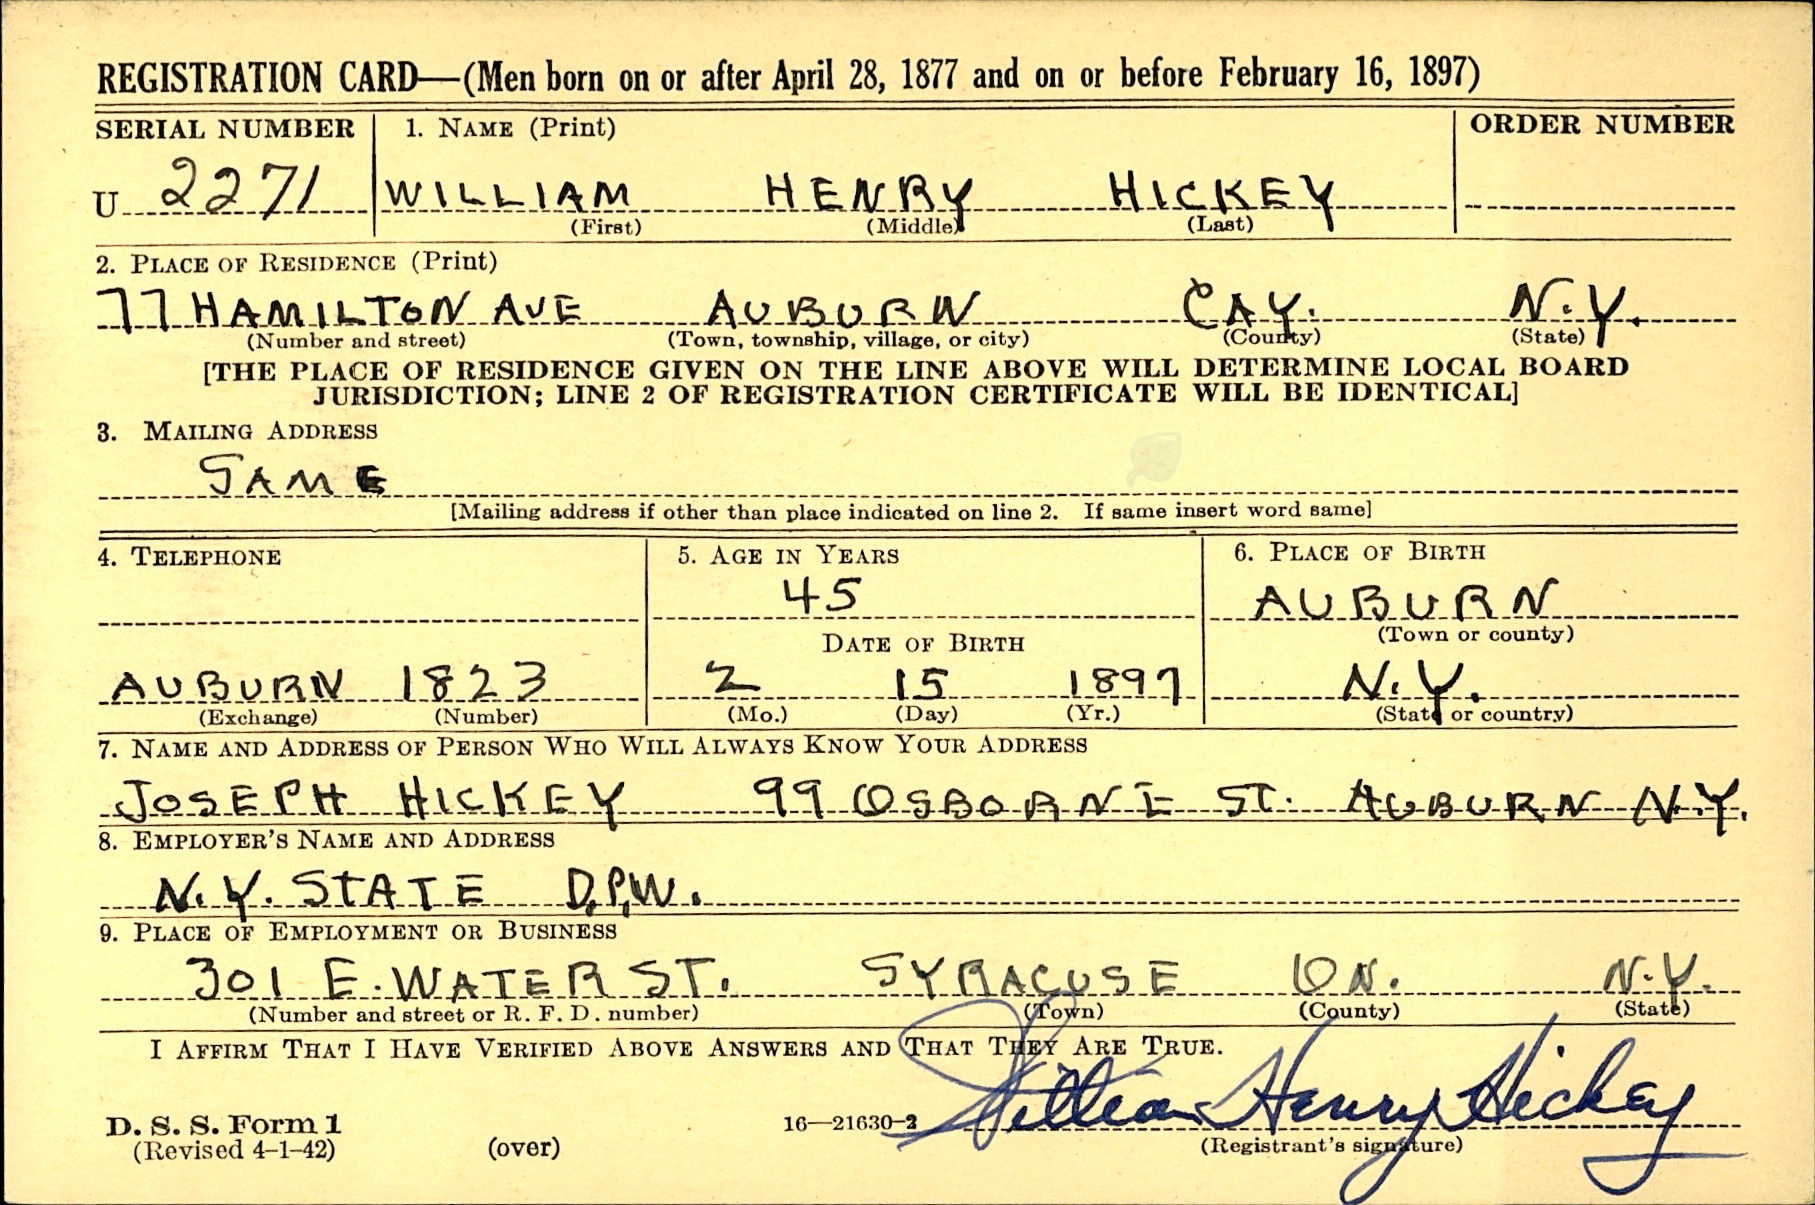 REGISTRATION CARD—(Men born on or after April 28, 1877 and on or before February 16, 1897)
SERIAL NUMBER 1. NAME (Print) ORDER NUMBER
U 2271 WILLIAM HENRY HICKEY
(First) (Middle) (Last)
2. PLACE OF RESIDENCE (Print)
77 HAMILTON AVE AUBURN CAY. N.Y.
(Number and street) (Town, township, village, or city) (County) (State)
[THE PLACE OF RESIDENCE GIVEN ON THE LINE ABOVE WILL DETERMINE LOCAL BOARD
JURISDICTION; LINE 2 OF REGISTRATION CERTIFICATE WILL BE IDENTICAL]
3. MAILING ADDRESS
SAME
[Mailing address if other than place indicated on line 2. If same insert word same]
4. TELEPHONE 5. AGE IN YEARS 6. PLACE OF BIRTH
45 AUBURN
DATE OF BIRTH (Town or county)
AUBURN 1823 2 15 1897 N.Y.
(Exchange) (Number) (Mo.) (Day) (Yr.) (State or country)
7. NAME AND ADDRESS OF PERSON WHO WILL ALWAYS KNOW YOUR ADDRESS
JOSEPH HICKEY 99 OSBORNE ST. AUBURN N.Y.
8. EMPLOYER'S NAME AND ADDRESS
N.Y. STATE D.P.W.
9. PLACE OF EMPLOYMENT OR BUSINESS
301 E. WATER ST. SYRACUSE ON. N.Y.
(Number and street or R. F. D. number) (Town) (County) (State)
I AFFIRM THAT I HAVE VERIFIED ABOVE ANSWERS AND THAT THEY ARE TRUE.
William Henry Hickey
D. S. S. Form 1 16—21630-2
(Revised 4-1-42) (over) (Registrant's signature)